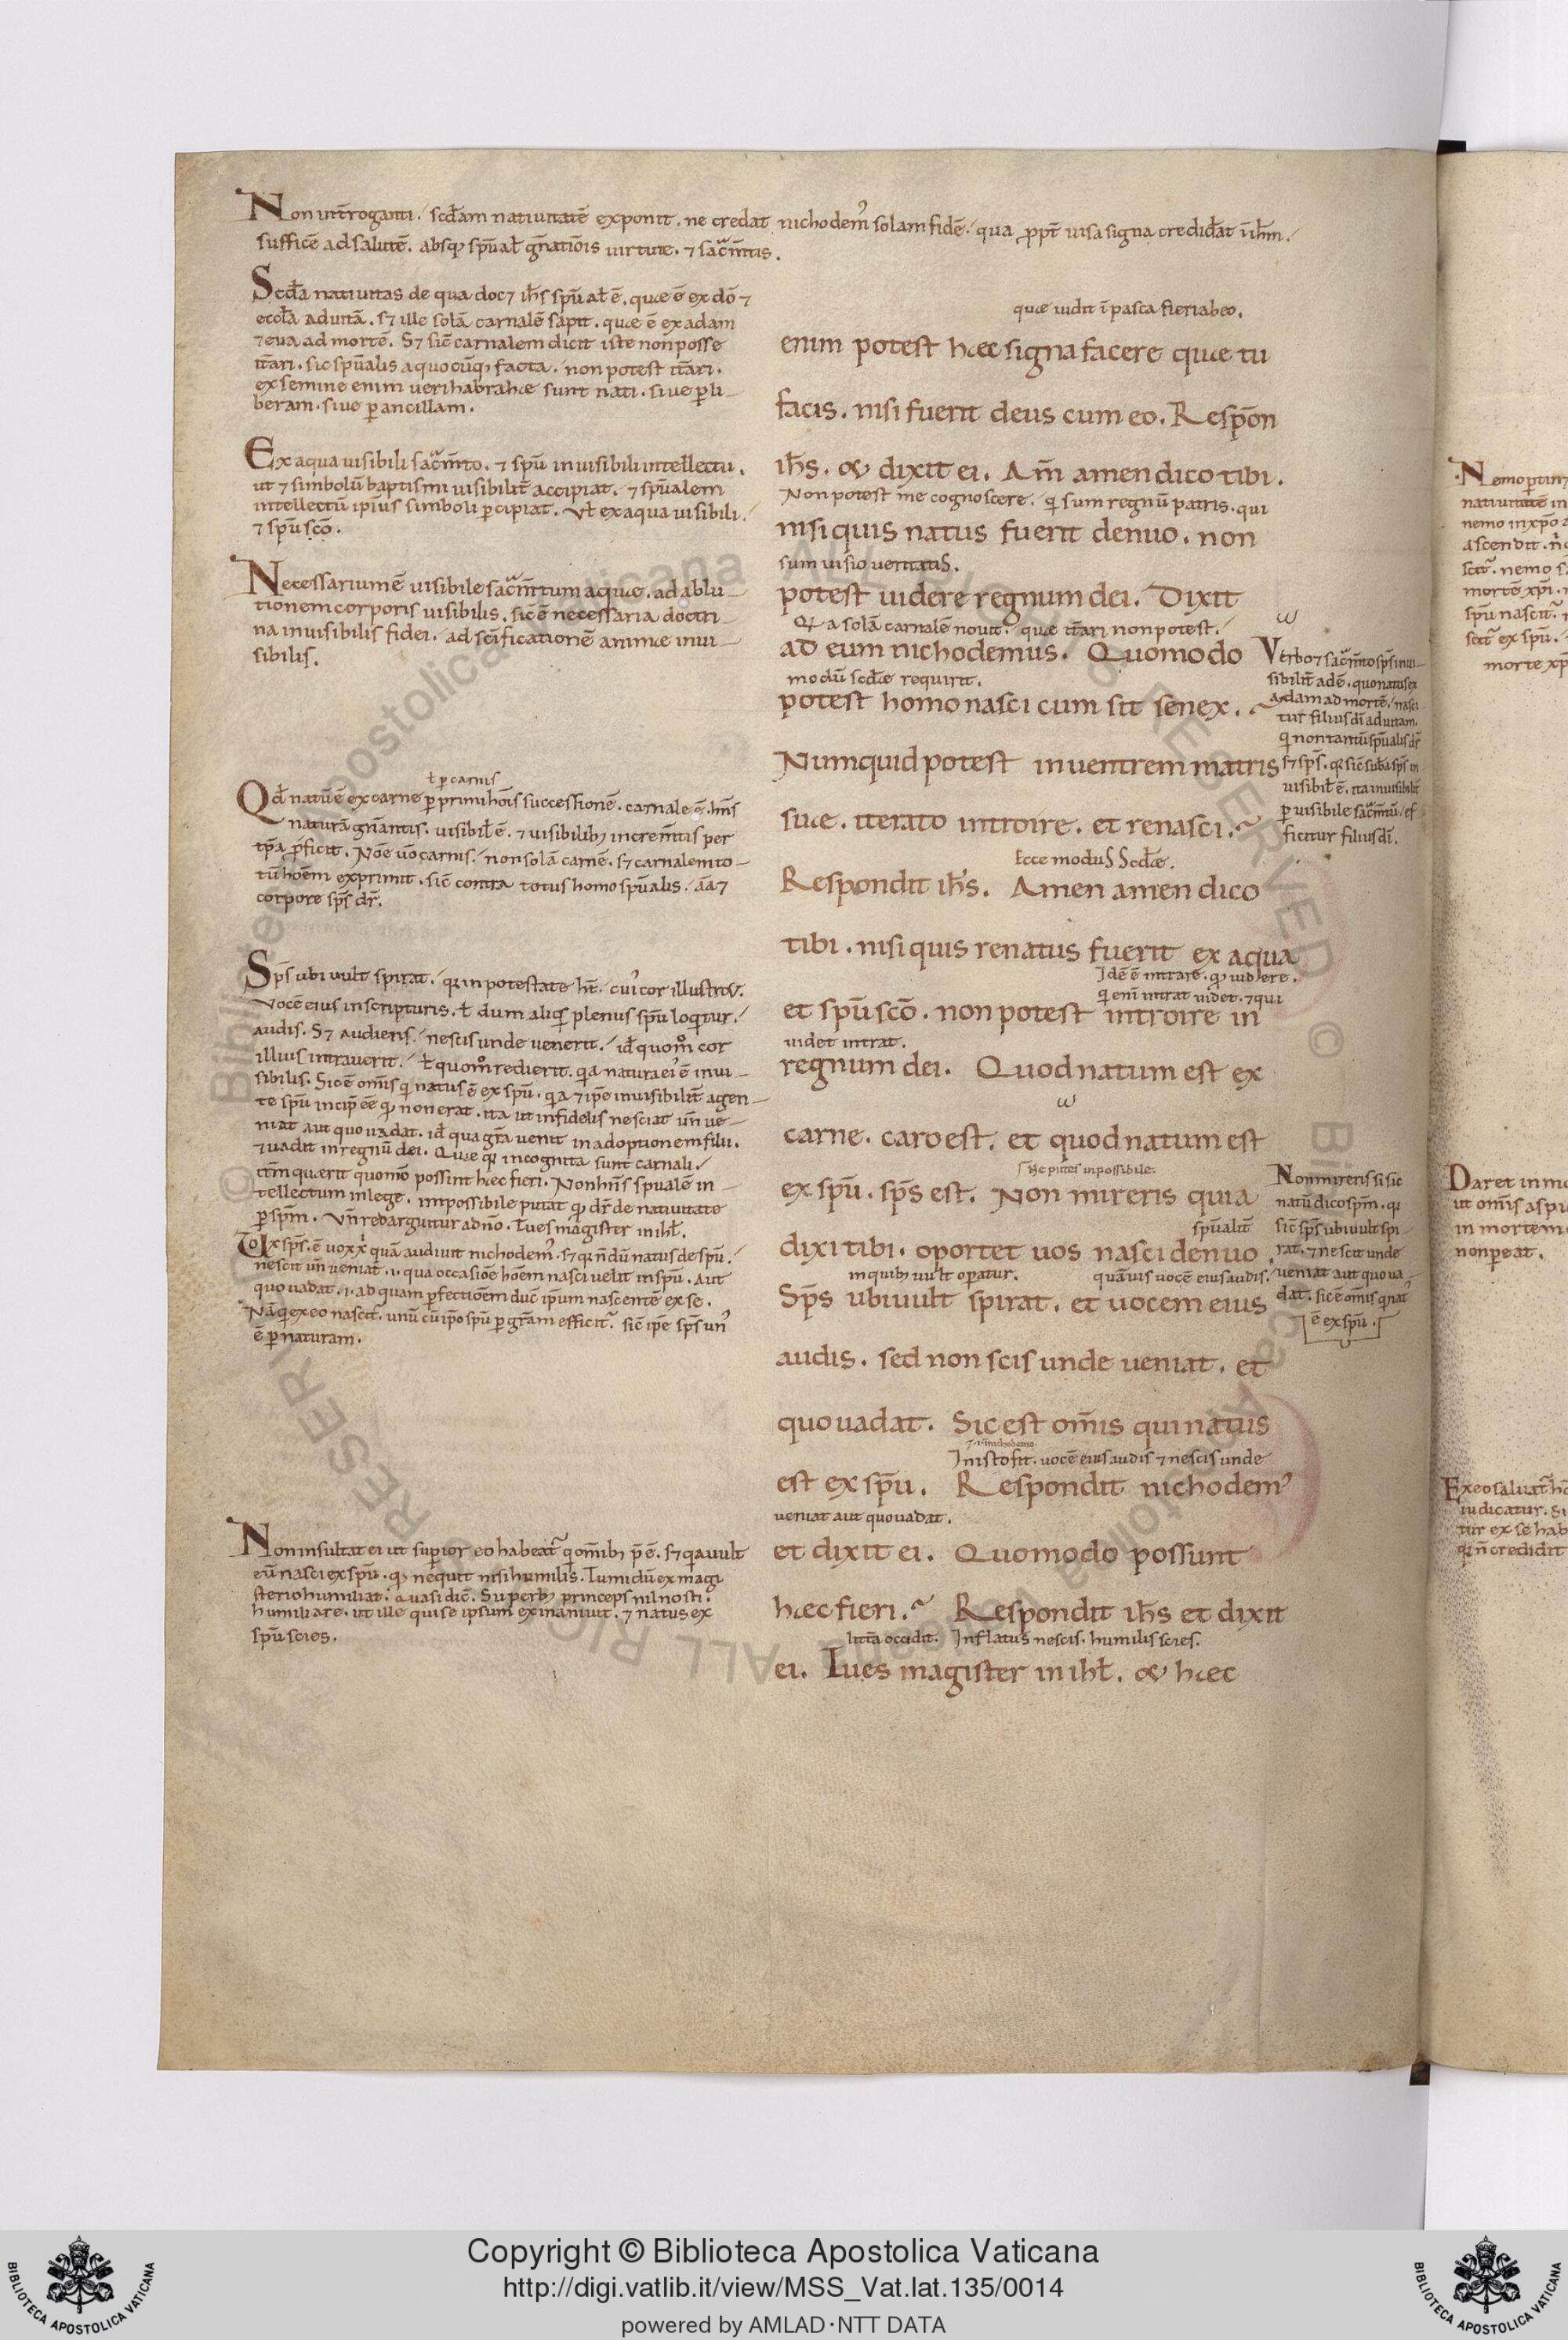 Non int̄roganti. sc̄dam natiuitatē exponit. ne credat nichodem᾽ solam fidē. qua ꝓpt̄ uisa signa credid̄at ih̄m.
sufficē ad salutē. absq; sp̄ual̄ gn̄ationis uirtute. ⁊ sac̄m̄tis.
Sc̄da natiuitas de qua doc⁊ ih̄s sp̄ual̄ ē. quae ē ex dō ⁊
eccl̄a ad uitā. s⁊ ille solā carnalē sapit. quae ē ex adam
⁊ eua ad mortē. S⁊ sic̄ carnalem dicit iste non posse
it̄ari. sic sp̄ualis a quocūq; facta. non potest it̄ari.
ex semine enim ueri habrahae sunt nati. siue ꝑ li-
beram. siue ꝑ ancillam.
Ex aqua uisibili sac̄m̄to. ⁊ sp̄u inuisibili intellectu.
ut ⁊ simbolū baptismi uisibilit̄ accipiat. ⁊ sp̄ualem
intellectū ipsius simboli ꝑcipiat. Vl̄ ex aqua uisibili.
⁊ sp̄u sc̄o.
Necessarium ē uisibile sac̄m̄tum aquae. ad ablu-
tionem corporis uisibilis. sic̄ ē necessaria doctri-
na inuisibilis fidei. ad sc̄ificationē animae inui-
sibilis.
ł ꝑ carnis
Qd̄ natū ē ex carne ꝑ primi hōis successionē. carnale ē. hn̄s
naturā gn̄antis. uisibil̄ ē. ⁊ uisibilib; increm̄tis per
tp̄a ꝓficit. Nōe ūo carnis. non solā carnē. s⁊ carnalem to-
tū hoēm exprimit. sic̄ contra totus homo sp̄ualis. āā ⁊
corpore sp̄s dr̄.
Sp̄s ubi uult spirat. qa in potestate ht̄. cui᾽ cor illustr&.
Vocē eius in scripturis. ł dum aliqs plenus sp̄u loqitur.
audis. S⁊ audiens. nescis unde uenerit. id̄ quom̊ cor
illius intrauerit. ł quom̊ redierit. qa natura ei᾽ ē inui-
sibilis. Sic ē om̄is qi natus ē ex sp̄u. qa ⁊ ip̄e inuisibilit̄ agen-
te sp̄u incip̄ ēē qd non erat. ita ut infidelis nesciat un̄ ue-
niat aut quo uadat. id̄ qua gr̄a uenit in adoptionem filii.
⁊ uadit in regnū dei. Quae qa incognita sunt carnali.
it̄m quaerit quomō possint haec fieri. Non hn̄s sp̄ualē in-
tellectum in lege. impossibile putat qd dr̄ de natiuitate
ꝑ sp̄m. Vn̄ redarguitur a dn̄o. Tu es magister in ihl̄.
nescit un̄ ueniat. i. qua occasiōe hoēm nasci uelit in sp̄u. Aut
quo uadat. i. ad quam ꝑfectiōem duc̄ ip̄um nascentē ex se.
Nā qi ex eo nascit̄. unū cū ip̄o sp̄u ꝑ gr̄am efficit̄. sic̄ ip̄e sp̄s un᾽
ē ꝑ naturam.
Non insultat ei ut suꝑior eo habeat̄ qi om̄ib; p̄ ē. s⁊ qa uult
eū nasci ex sp̄u. qd nequit nisi humilis. Tumidū ex magi
sterio humiliat. quasi dic̄. Superb; princeps nil nosti.
humiliare. ut ille qui se ipsum exinaniuit. ⁊ natus ex
sp̄u scies.
quae uidit ī pasca fieri ab eo.
enim potest haec signa facere quae tu
facis. nisi fuerit deus cum eo. Respōn
ih̄s. & dixit ei. Am̄ amen dico tibi.
Non potest me cognoscere. qi sum regnū patris. qui
nisi quis natus fuerit denuo. non
sum uisio ueritatis.
potest uidere regnum dei. Dixit
Qa solā carnalē nouit. quae it̄ari non potest.
ad eum nichodemus. Quomodo
modū sc̄dae requirit.
potest homo nasci cum sit senex.
Numquid potest in uentrem matris
suae. iterato introire. et renasci.
Ecce modus Sc̄dae.
Respondit ih̄s. Amen amen dico
tibi. nisi quis renatus fuerit ex aqua
Idē ē intrare. qd uidere.
qi eni intrat uidet. ⁊ qui
et sp̄u sc̄o. non potest introire in
uidet intrat.
regnum dei. Quod natum est ex
ω
carne. caro est. et quod natum est
s. ne putes inpossibile.
ex sp̄u. sp̄s est. Non mireris quia
sp̄ualit̄
dixi tibi. oportet uos nasci denuo.
in quib; uult oꝑatur. quāuis uocē eius audis.
Sp̄s ubi uult spirat. et uocem eius
audis. sed non scis unde ueniat. et
quo uadat. Sic est om̄is qui natus
In isto fit. uocē eius audis ⁊ nescis unde
est ex sp̄u. Respondit nichodem᾽
ueniat aut quo uadat.
et dixit ei. Quomodo possunt
haec fieri. Respondit ih̄s et dixit
litt̄a occidit. Inflatus nescis. humilis scies.
ei. Tu es magister in ihl̄. & haec
ω
Verbo ⁊ sac̄m̄to sp̄s inui-
sibilit̄ adē. quo natus ex
adam ad mortē. nasci
tur filius dī ad uitam.
qi non tantū sp̄ualis dr̄
s⁊ sp̄s.
uisibil̄ ē. ita inuisibilit̄
ꝑ uisibile sac̄m̄tū. ef
ficitur filius dī.
Non mireris si sic
natū dico sp̄m. qa
sic̄ sp̄s ubi uult spi-
rat. ⁊ nescit unde
ueniat aut quo ua
dat. sic ē om̄is qi nat᾽
ē ex sp̄u.
Daret in
ut om̄is
in mortem
non ꝑeat.
iudicatur.
Copyright © Biblioteca Apostolica Vaticana
http://digi.vatlib.it/view/MSS_Vat.lat.135/0014
powered by AMLAD·NTT DATA
BIBLIOTECA APOSTOLICA VATICANA
BIBLIOTECA APOSTOLICA VATICANA